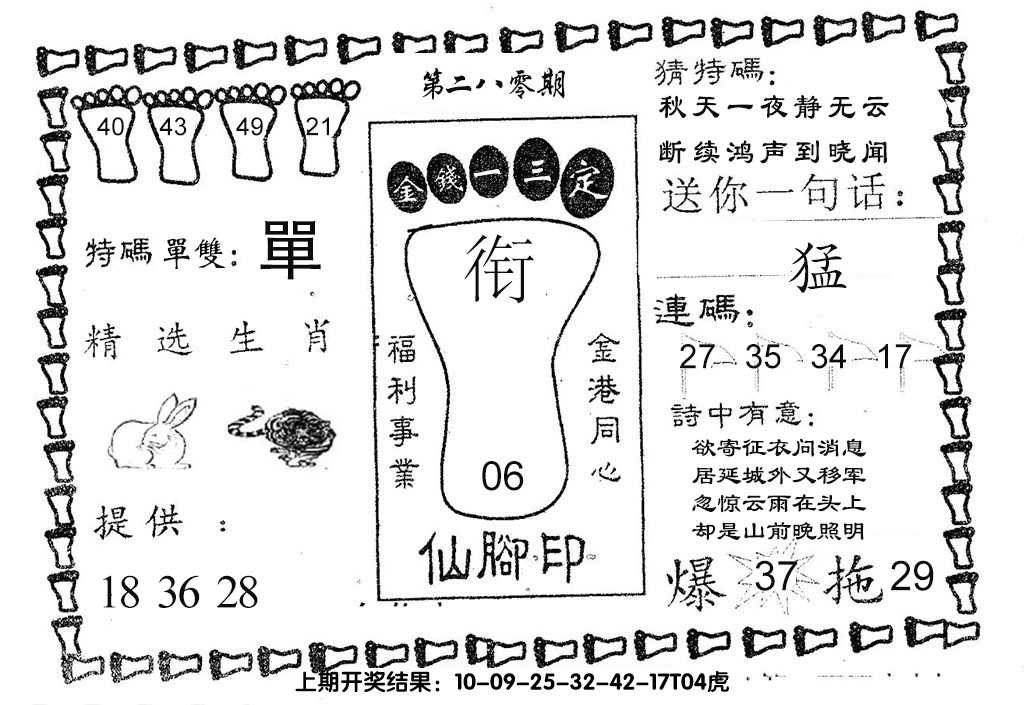 第二八零期
40 43 49 21
特碼 單雙: 單
精选生肖
提供 :
18 36 28
金錢一三定
衔
福利事業
金港同心
06
仙腳印
猜特碼:
秋天一夜静无云
断续鸿声到晓闻
送你一句话:
猛
連碼:
27 35 34 17
詩中有意:
欲寄征衣问消息
居延城外又移军
忽惊云雨在头上
却是山前晚照明
爆 37 拖 29
上期开奖结果: 10-09-25-32-42-17T04虎